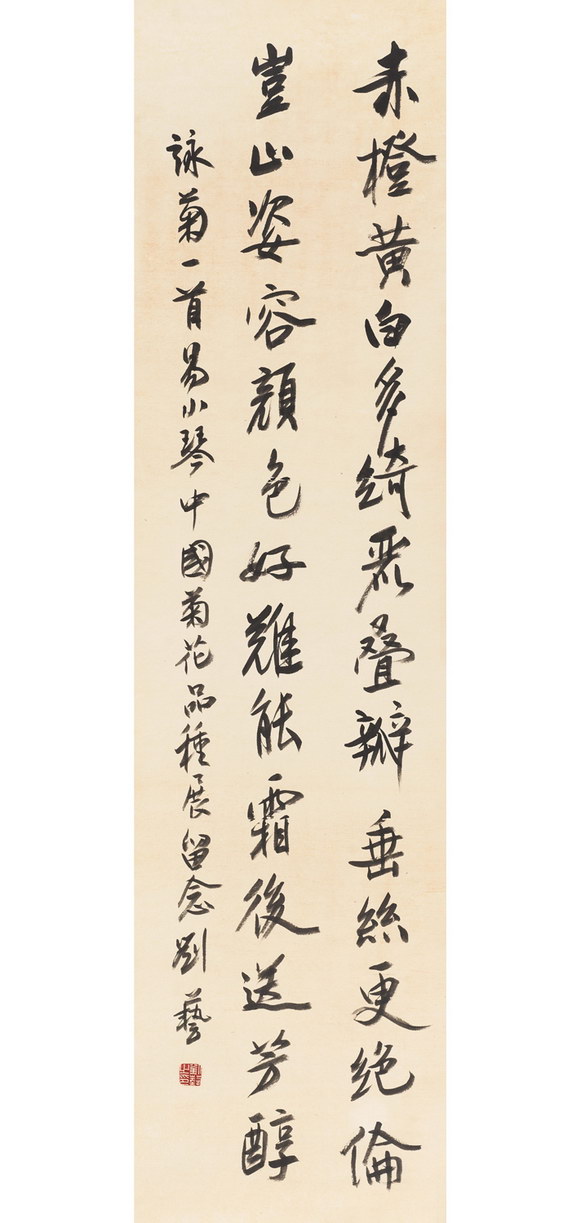 赤橙黄白多綺麗叠瓣垂絲更绝倫
豈止姿容顏色好難能霜後送芳醇
詠菊一首易小琴中國菊花品種展留念劉藝